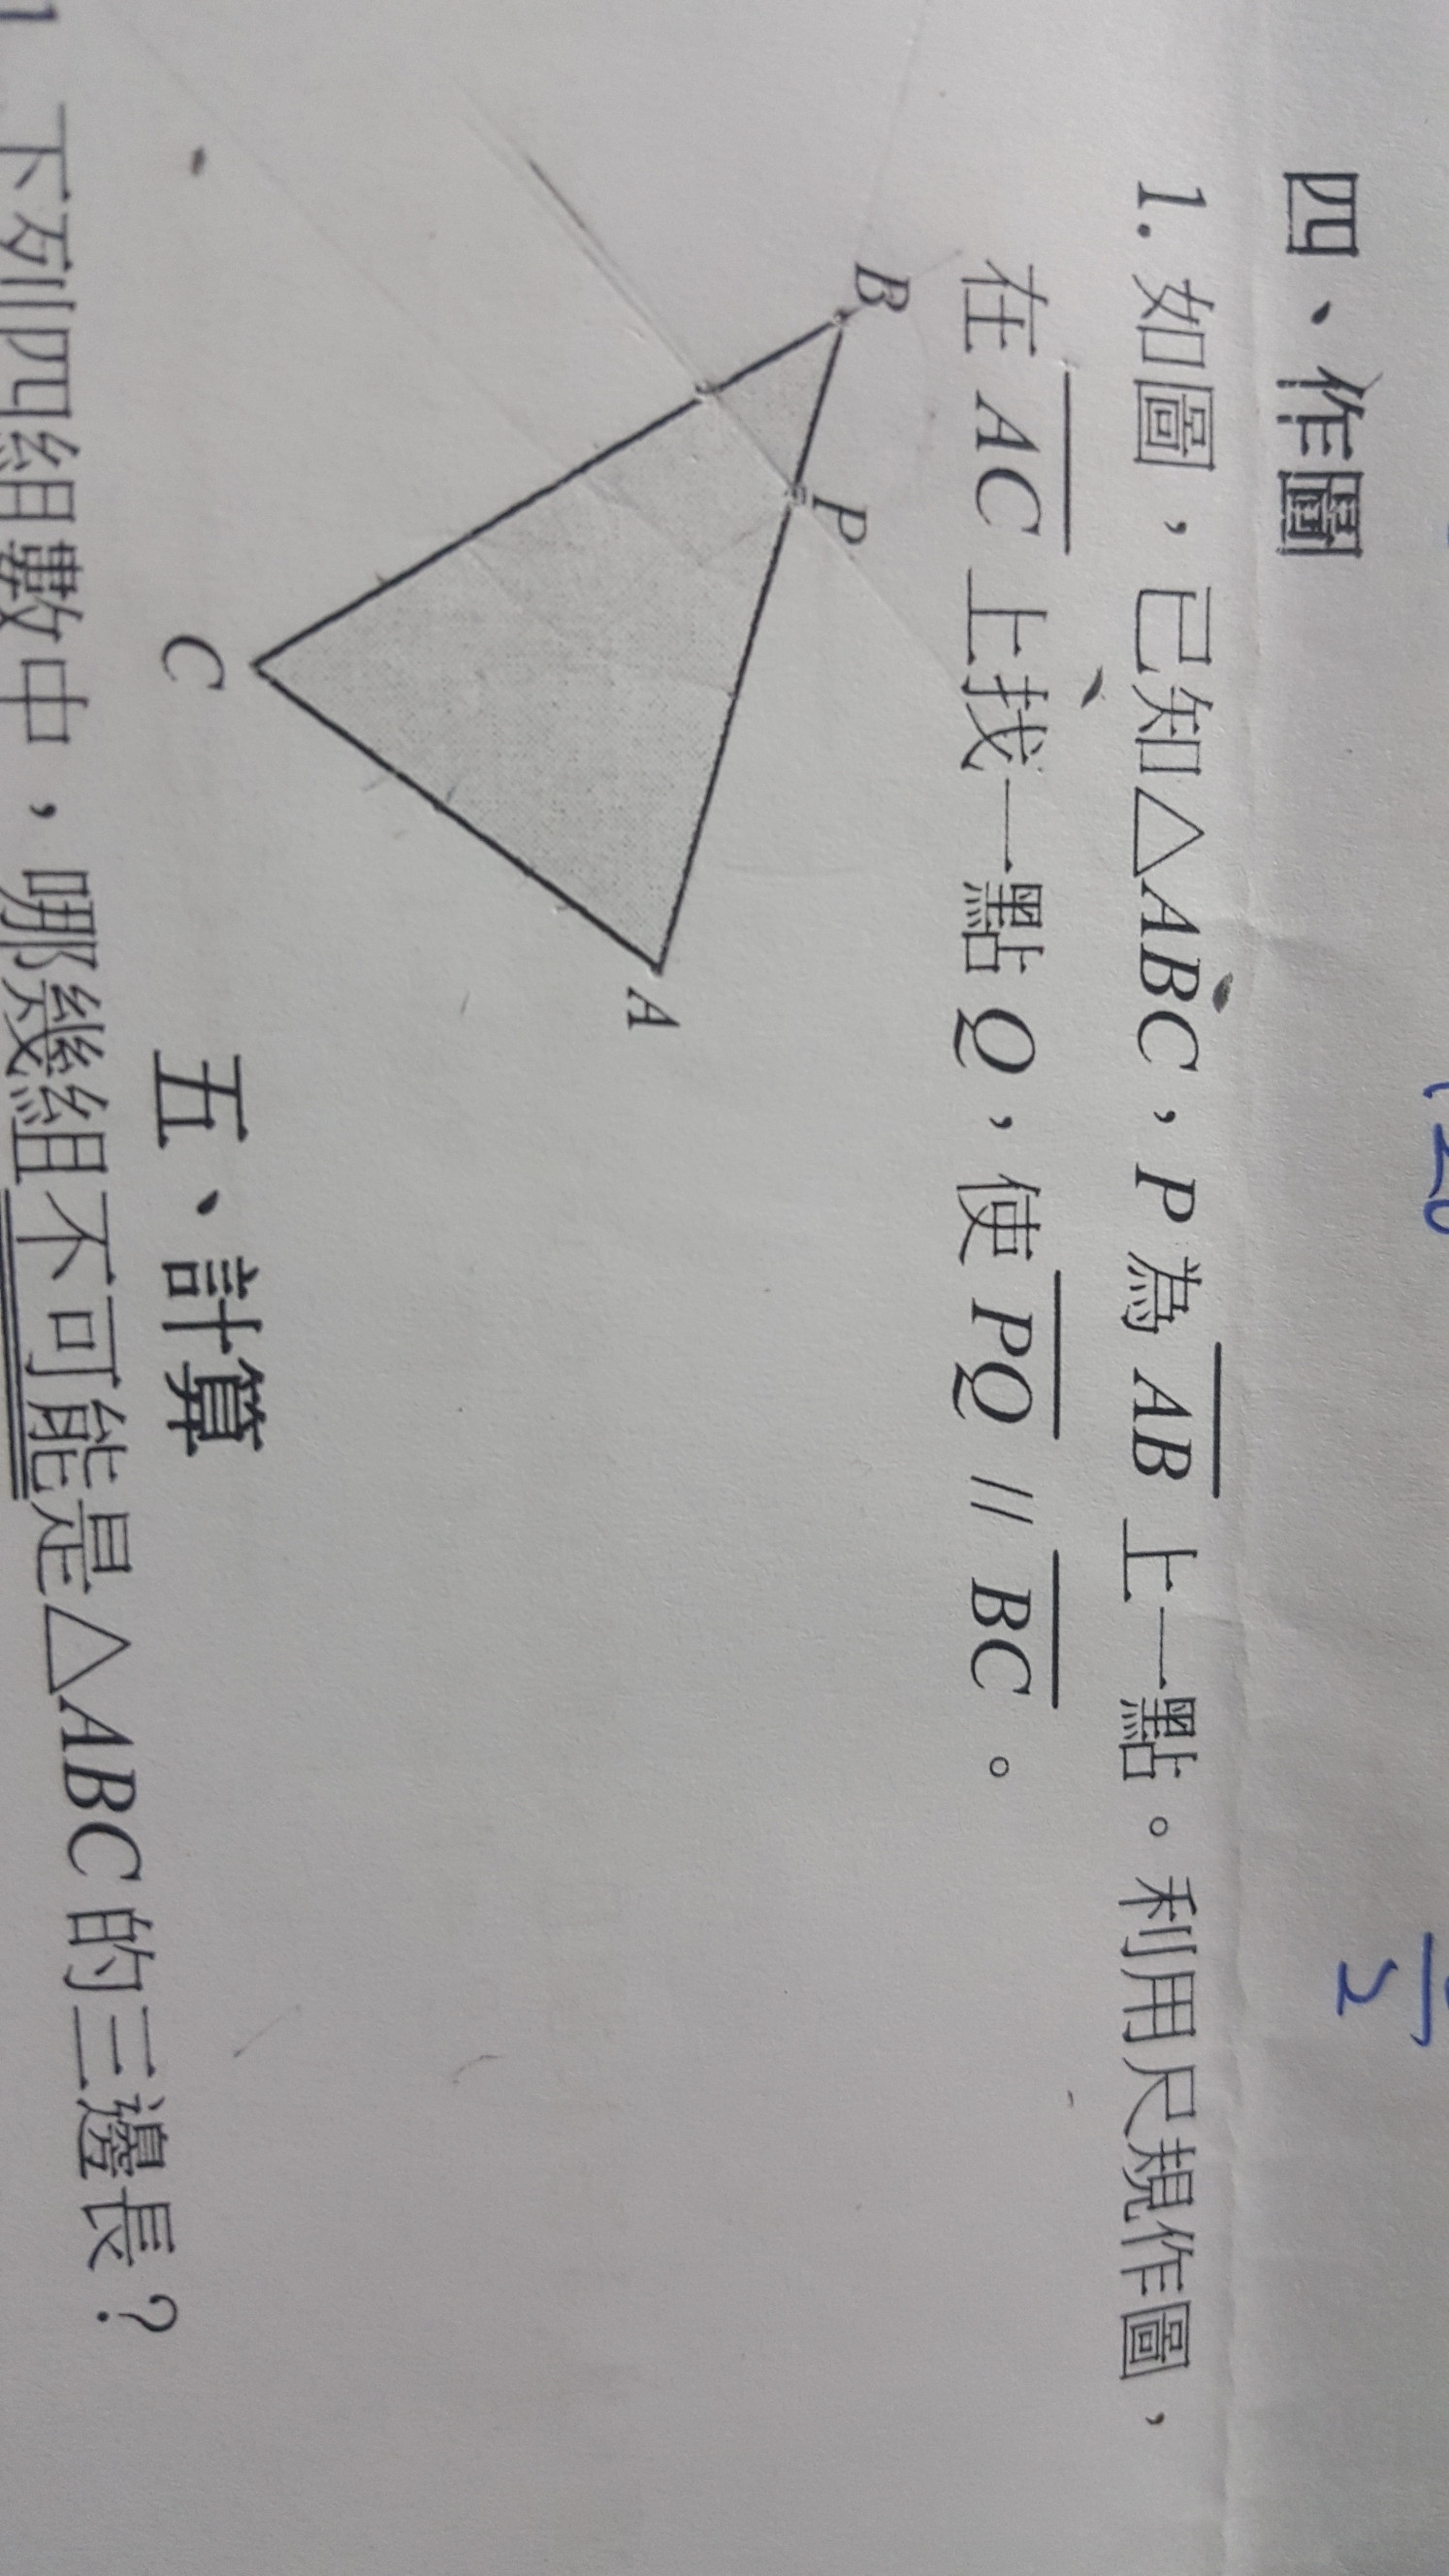 四、作圖
1. 如圖，已知△ABC，P 為 AB 上一點。利用尺規作圖，
在 AC 上找一點 Q，使 PQ // BC。
B
P
A
C
五、計算
1. 下列四組數中，哪幾組不可能是△ABC 的三邊長？